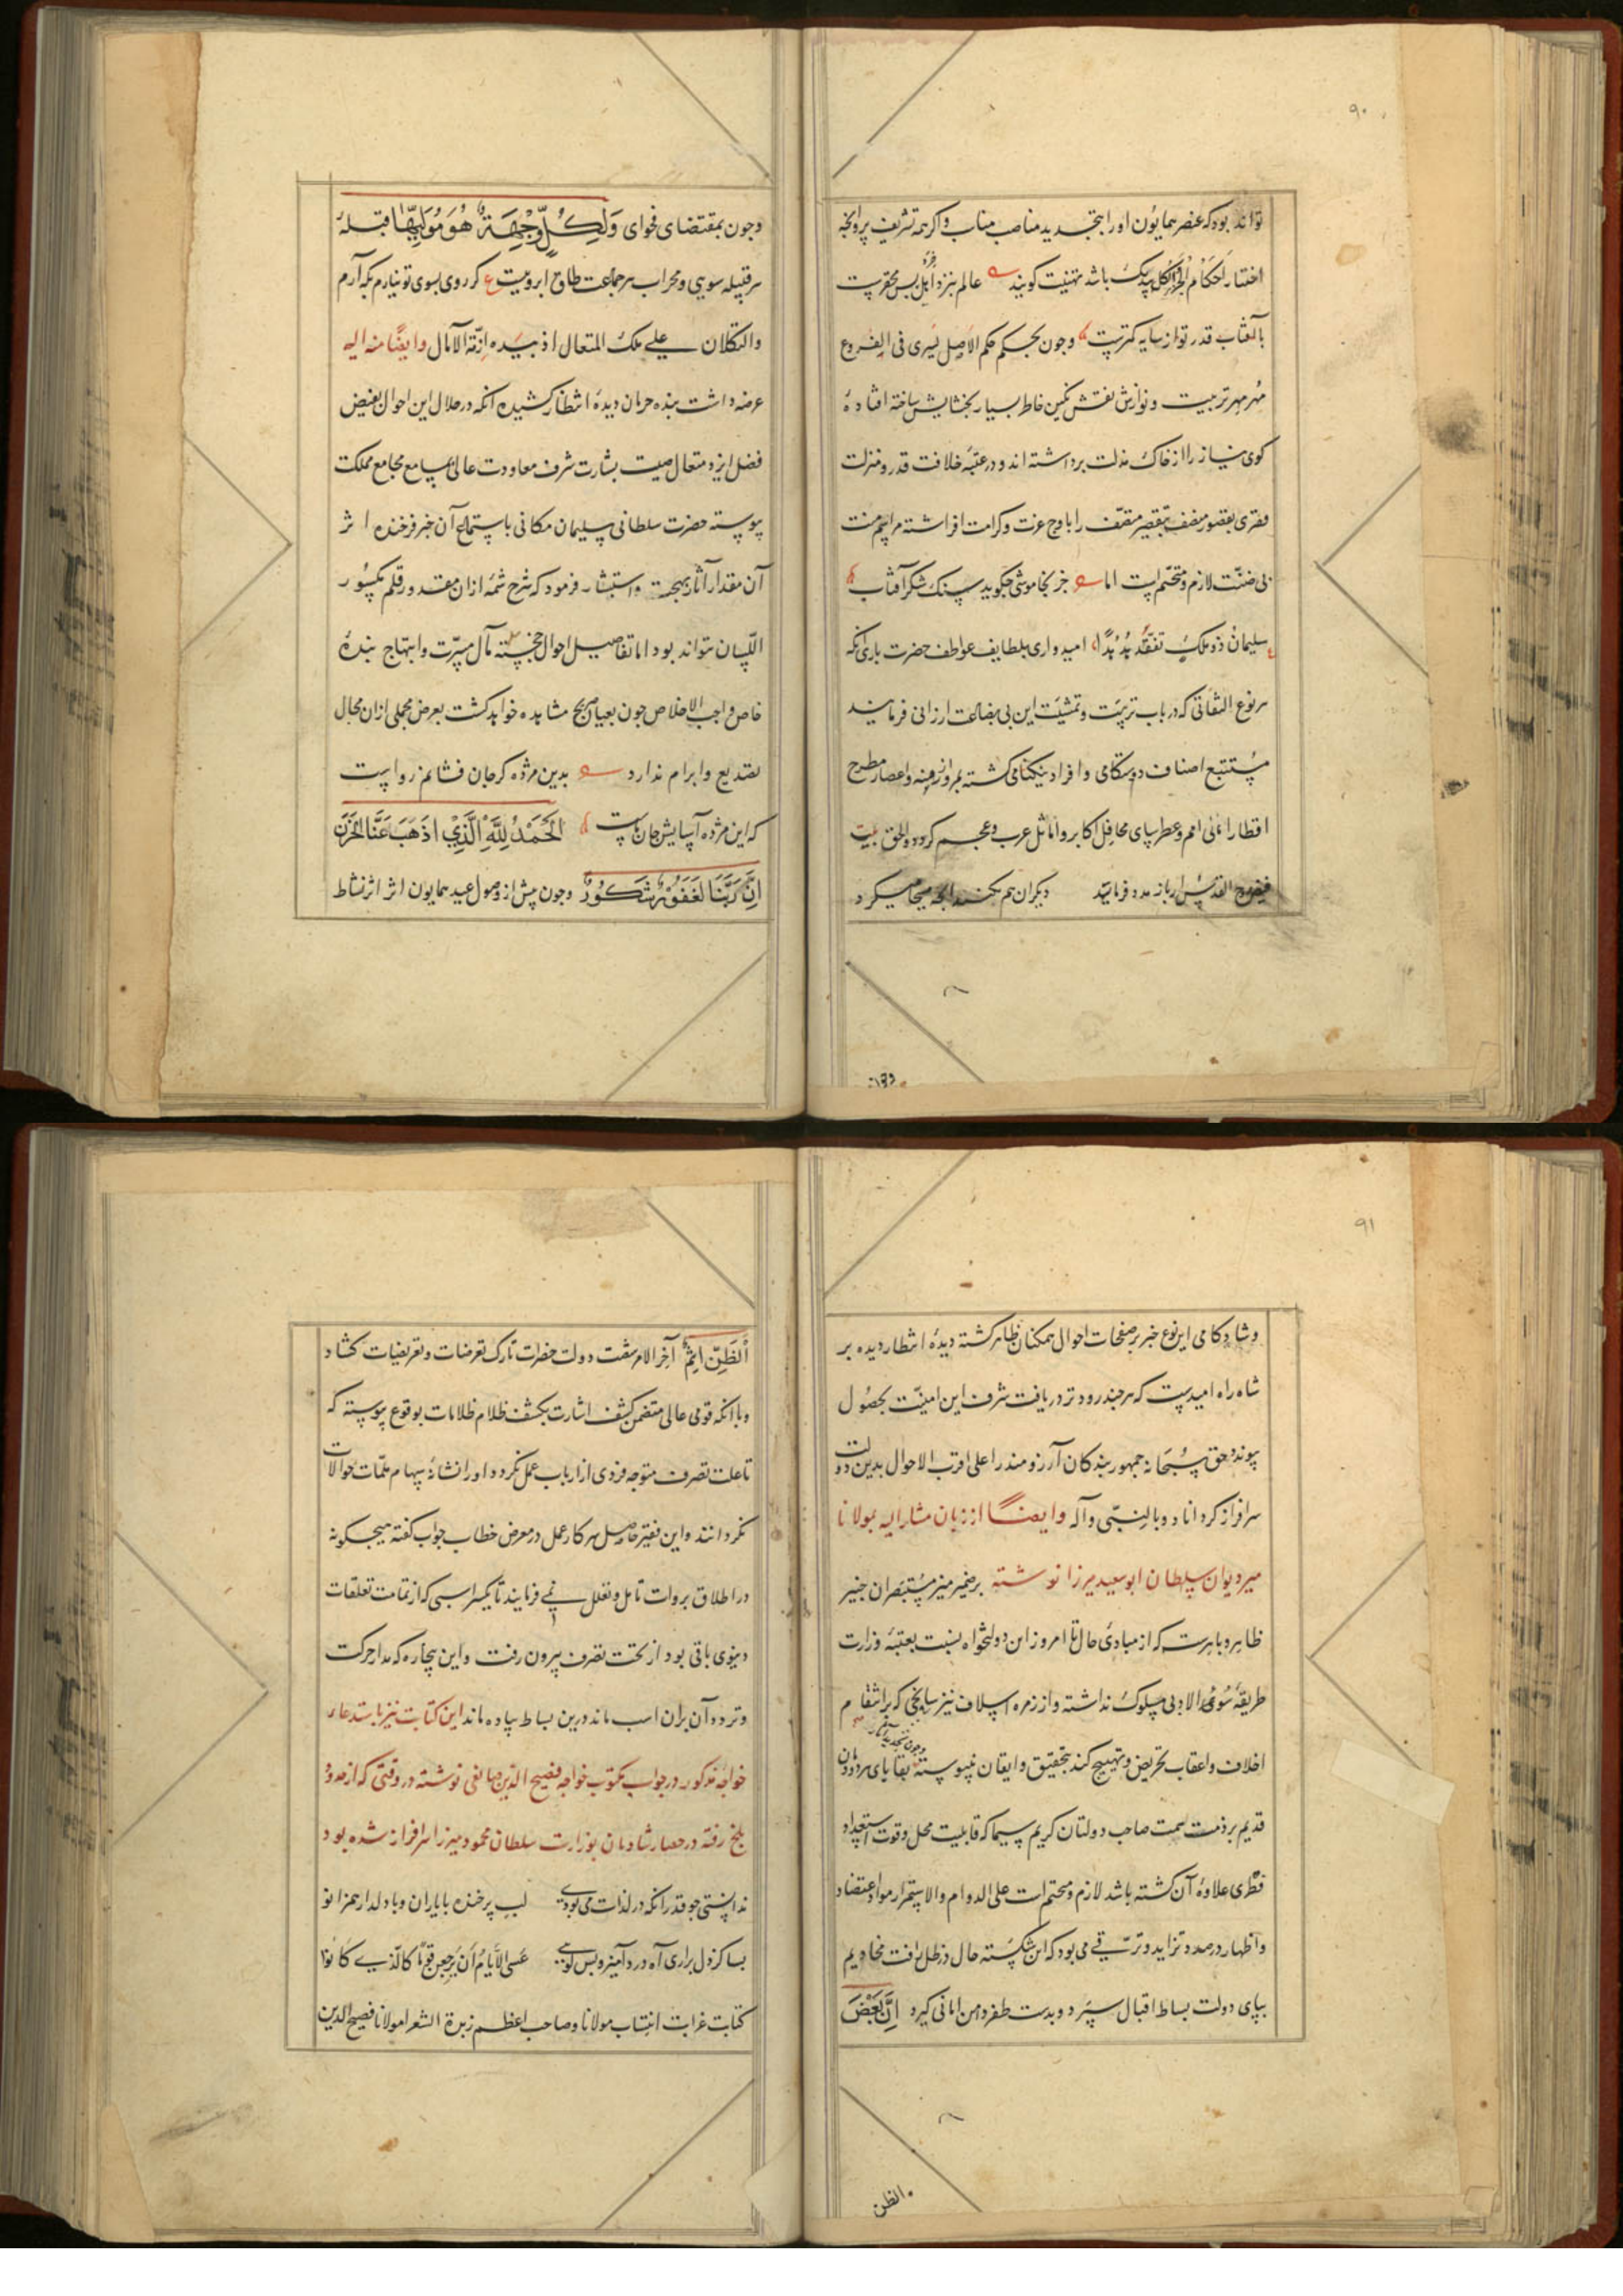 ۹۰
تواند بود که عنصر همایون اورا بتجدید مناصب مناب و اکرمه تشریف پروانجه
اختیار احکام الجزء الکل یک باشد تهنیت کویند عالم بنزد اهل بس محقرست
بالقاب قدر تو از سایه کمترست وجون بحکم حکم الاصل یسری فی الفروع
مهر مهر تربیت و نوازش نقش نکین خاطر بسیار بخشایش ساخته افتاده
کوی نیاز را از خاک مذلت برداشته اند و در عتبه خلافت قدر و منزلت
فقری بقصور متصف بتقصیر متقف را باوج عزت و کرامت افراشته مراسم منت
بی ضنت لازم و متحتم است اما جز بخاموشی چکوید سنک شکر آفتاب
سلیمان ذو ملک تفقد هدهدا امیدواری بلطایف عواطف حضرت باری انکه
هر نوع التفاتی که در باب تربیت و تمشیت این بی بضاعت ارزانی فرمایند
مستتبع اصناف دوستکامی و افراد نیکنامی کشته بمرور ازمنه و اعصار مطرح
اقطار امانی امم و عطرسای محافل اکابر و اماثل عرب و عجم کردد والحق بیت
فیض روح القدس ار باز مدد فرماید دیکران هم بکنند انجه مسیحا میکرد
وجون
وجون بمقتضای فحوای وَلِكُلٍّ وِجْهَةٌ هُوَ مُوَلِّيهَا قبله
هر قبیله سویی و محراب هر جماعت طاق ابرویست ع کر روی بسوی تو نیارم بکه آرم
والتکلان علی ملک المتعال اذ بیده ازمّة الآمال وایضًا منه الیه
عرضه داشت بنده حرمان دیده انتظار کشیده آنکه در خلال این احوال بفیض
فضل ایزد متعال صیت بشارت شرف معاودت عالی بمسامع مجامع مملکت
پیوسته حضرت سلطانی سلیمان مکانی باستماع آن خبر فرخنده اثر
آن مقدار آثار بهجت و استبشار فرمود که شرح شمه ازان مقدور قلم مکسور
اللسان نتواند بود اما تفاصیل احوال خجسته مآل مسرت و ابتهاج بنده
خاص واجب الاخلاص جون بعیان صریح مشاهده خواهد کشت بعرض مجملی ازان مجال
تصدیع و ابرام ندارد بدین مژده کر جان فشانم رواست
که این مژده آسایش جان ماست الْحَمْدُ لِلَّهِ الَّذِي اذْهَبَ عَنَّا الْحَزَنَ
اِنَّ رَبَّنَا لَغَفُورٌ شَكُورٌ وجون پیش از وصول عید همایون اثر اثر نشاط
۹۱
وشادکامی این نوع خبر بر صفحات احوال همکنان ظاهر کشته دیده انتظار دیده بر
شاه راه امیدست که هرجند زودتر دریافت شرف این امنیت بحصول
پیوندد حق سبحانه جمهور بندکان آرزومند را علی اقرب الاحوال بدین دولت
سرافراز کرداناد وبالنبی وآله وایضًا از زبان مشارالیه بمولانا
میر دیوان سلطان ابوسعید میرزا نوشته بر ضمیر منیر مستبصران خبیر
ظاهر و باهرست که از مبادی حال تا امروز این دولتخواه نسبت بعتبه وزارت
طریقه سوی الادبی مسلوک نداشته و از زمره اسلاف نیز سانحی که بر انتقام
اخلاف و اعقاب تحریض و تهییج کند بتحقیق و ایقان نپیوسته بقایای مردودان
قدیم بر ذمت همت صاحب دولتان کریم سیما که قابلیت محل و قوت استعداد
فطری علاوه آن کشته باشد لازم و متحتم است علی الدوام والاستمرار مواد اعتضاد
واظهار در صدد تزاید و ترقی می بود که این شکسته حال در ظل رافت مخادیم
بپای دولت بساط اقبال سپرد و بدست ظفر دامن امانی کیرد اِنَّ بَعْضَ
الظن
الظَّنِّ اِثْمٌ آخر الامر سفت دولت حضرات تارک تعرضات و تعریضات کشاد
وباآنکه قومی عالی متضمن کشف اشارت بکشف ظلام ظلامات بوقوع پیوسته که
تاعلت تصرف متوجه فردی از ارباب عمل نکردد او را نشانه سهام ملمات حوالات
نکردانند و این فقیر حاصل هر کار عمل در معرض خطاب جواب کفته هیجکونه
در اطلاق بروات تامل و تعلل نمی فرمایند تا یکسر اسبی که از تمامت تعلقات
دنیوی باقی بود از تحت تصرف بیرون رفت و این بیچاره که مدار حرکت
و تردد آن بران اسب ماند درین بساط پیاده ماند این کتابت نیز باستدعاء
خواجه مذکور در جواب مکتوب خواجه فصیح الدین صانعی نوشته در وقتی که از حدود
بلخ رفته در حصار شادمان بوزارت سلطان محمود میرزا سرافراز شده بود
ندانستی جو قدر آنکه در لذات می بودی لب پر خنده بایاران وبا دلدار همزانو
بسا کز دل براری آه درد آمیز و بس کویی عَسَی الاَیّامُ اَن یَرجِعنَ قَومًا کالّذی کانوا
کتابت غرابت انتساب مولانا و صاحب اعظم زبدة الشعرا مولانا فصیح الدین